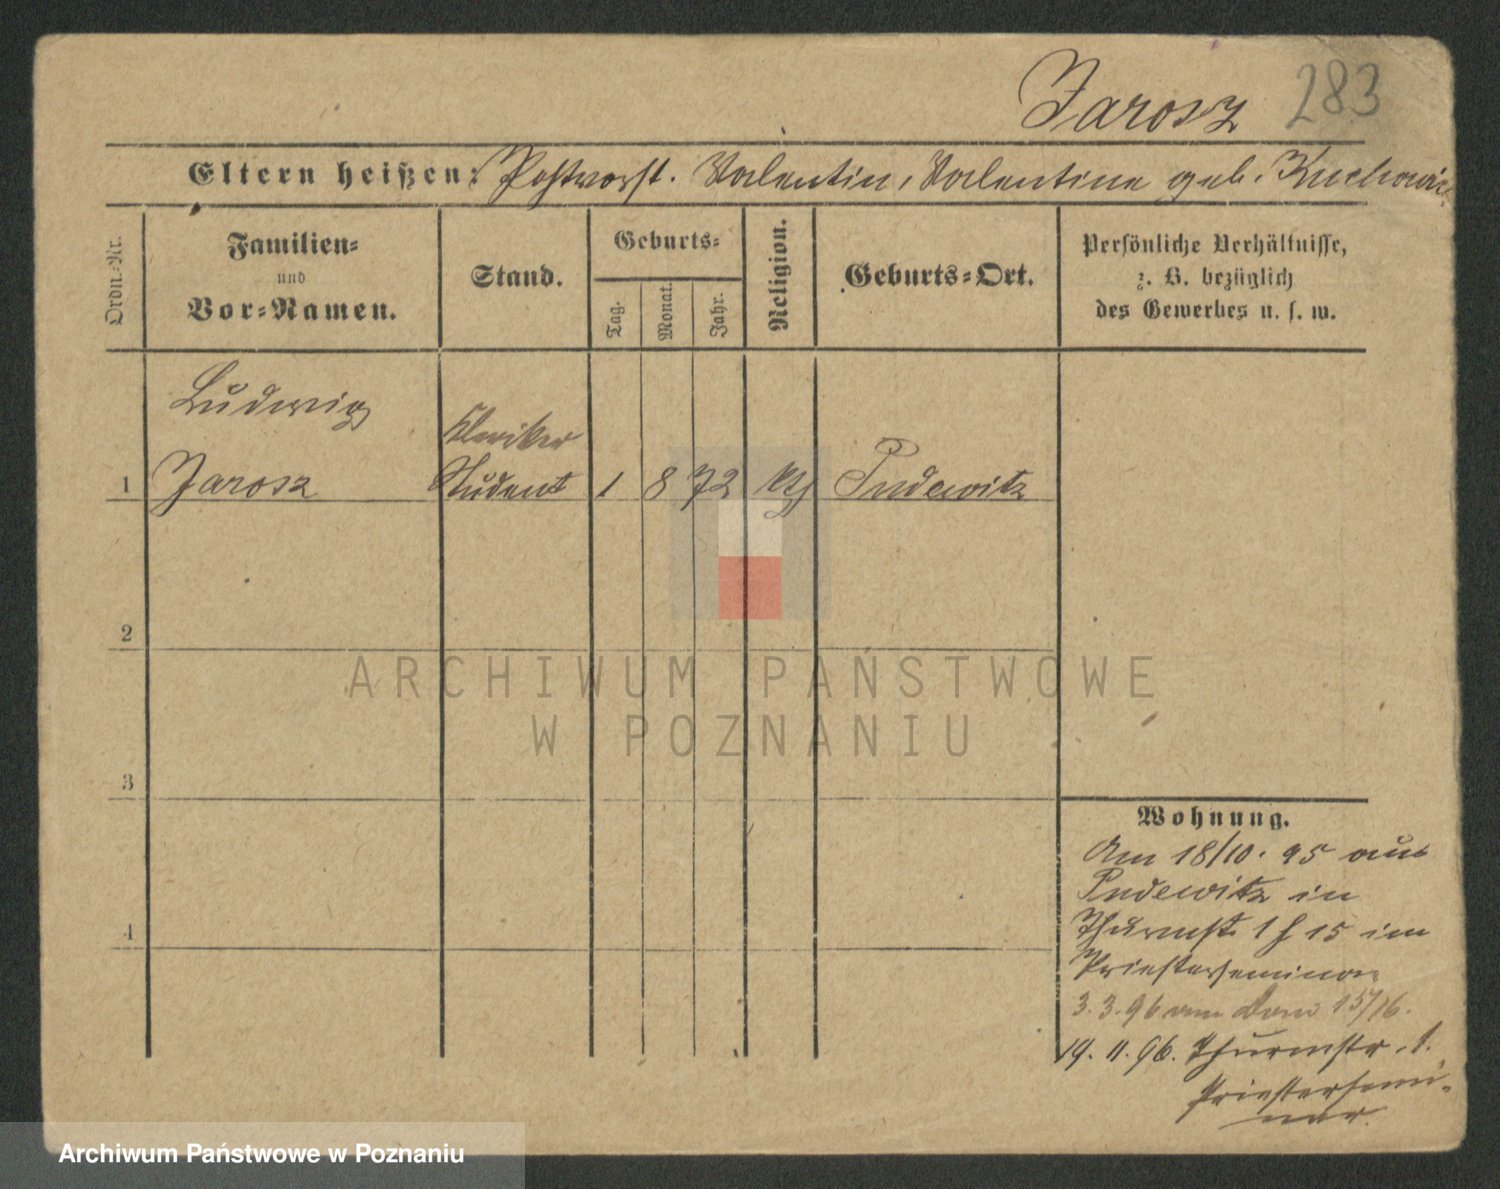 Jarosz 283
Eltern heißen: Postvorst. Valentin, Valentine geb.
Ordn.-Nr.
Familien-
und
Vor-Namen.
Stand.
Geburts-
Tag.
Monat.
Jahr.
Religion.
Geburts-Ort.
Persönliche Verhältnisse,
z. B. bezüglich
des Gewerbes u. s. w.
Ludwig
Kleriker
1 Jarosz Student 1 8 72 kth Pudewitz
2
ARCHIWUM PAŃSTWOWE
W POZNANIU
3
4
Wohnung.
Am 18/10. 95 aus
Pudewitz in
Thurmstr 15 im
Priesterseminar
3.3.96 am Dom 15/16.
19.11.96. Thurmstr. 1.
Priestersemi-
nar.
Archiwum Państwowe w Poznaniu